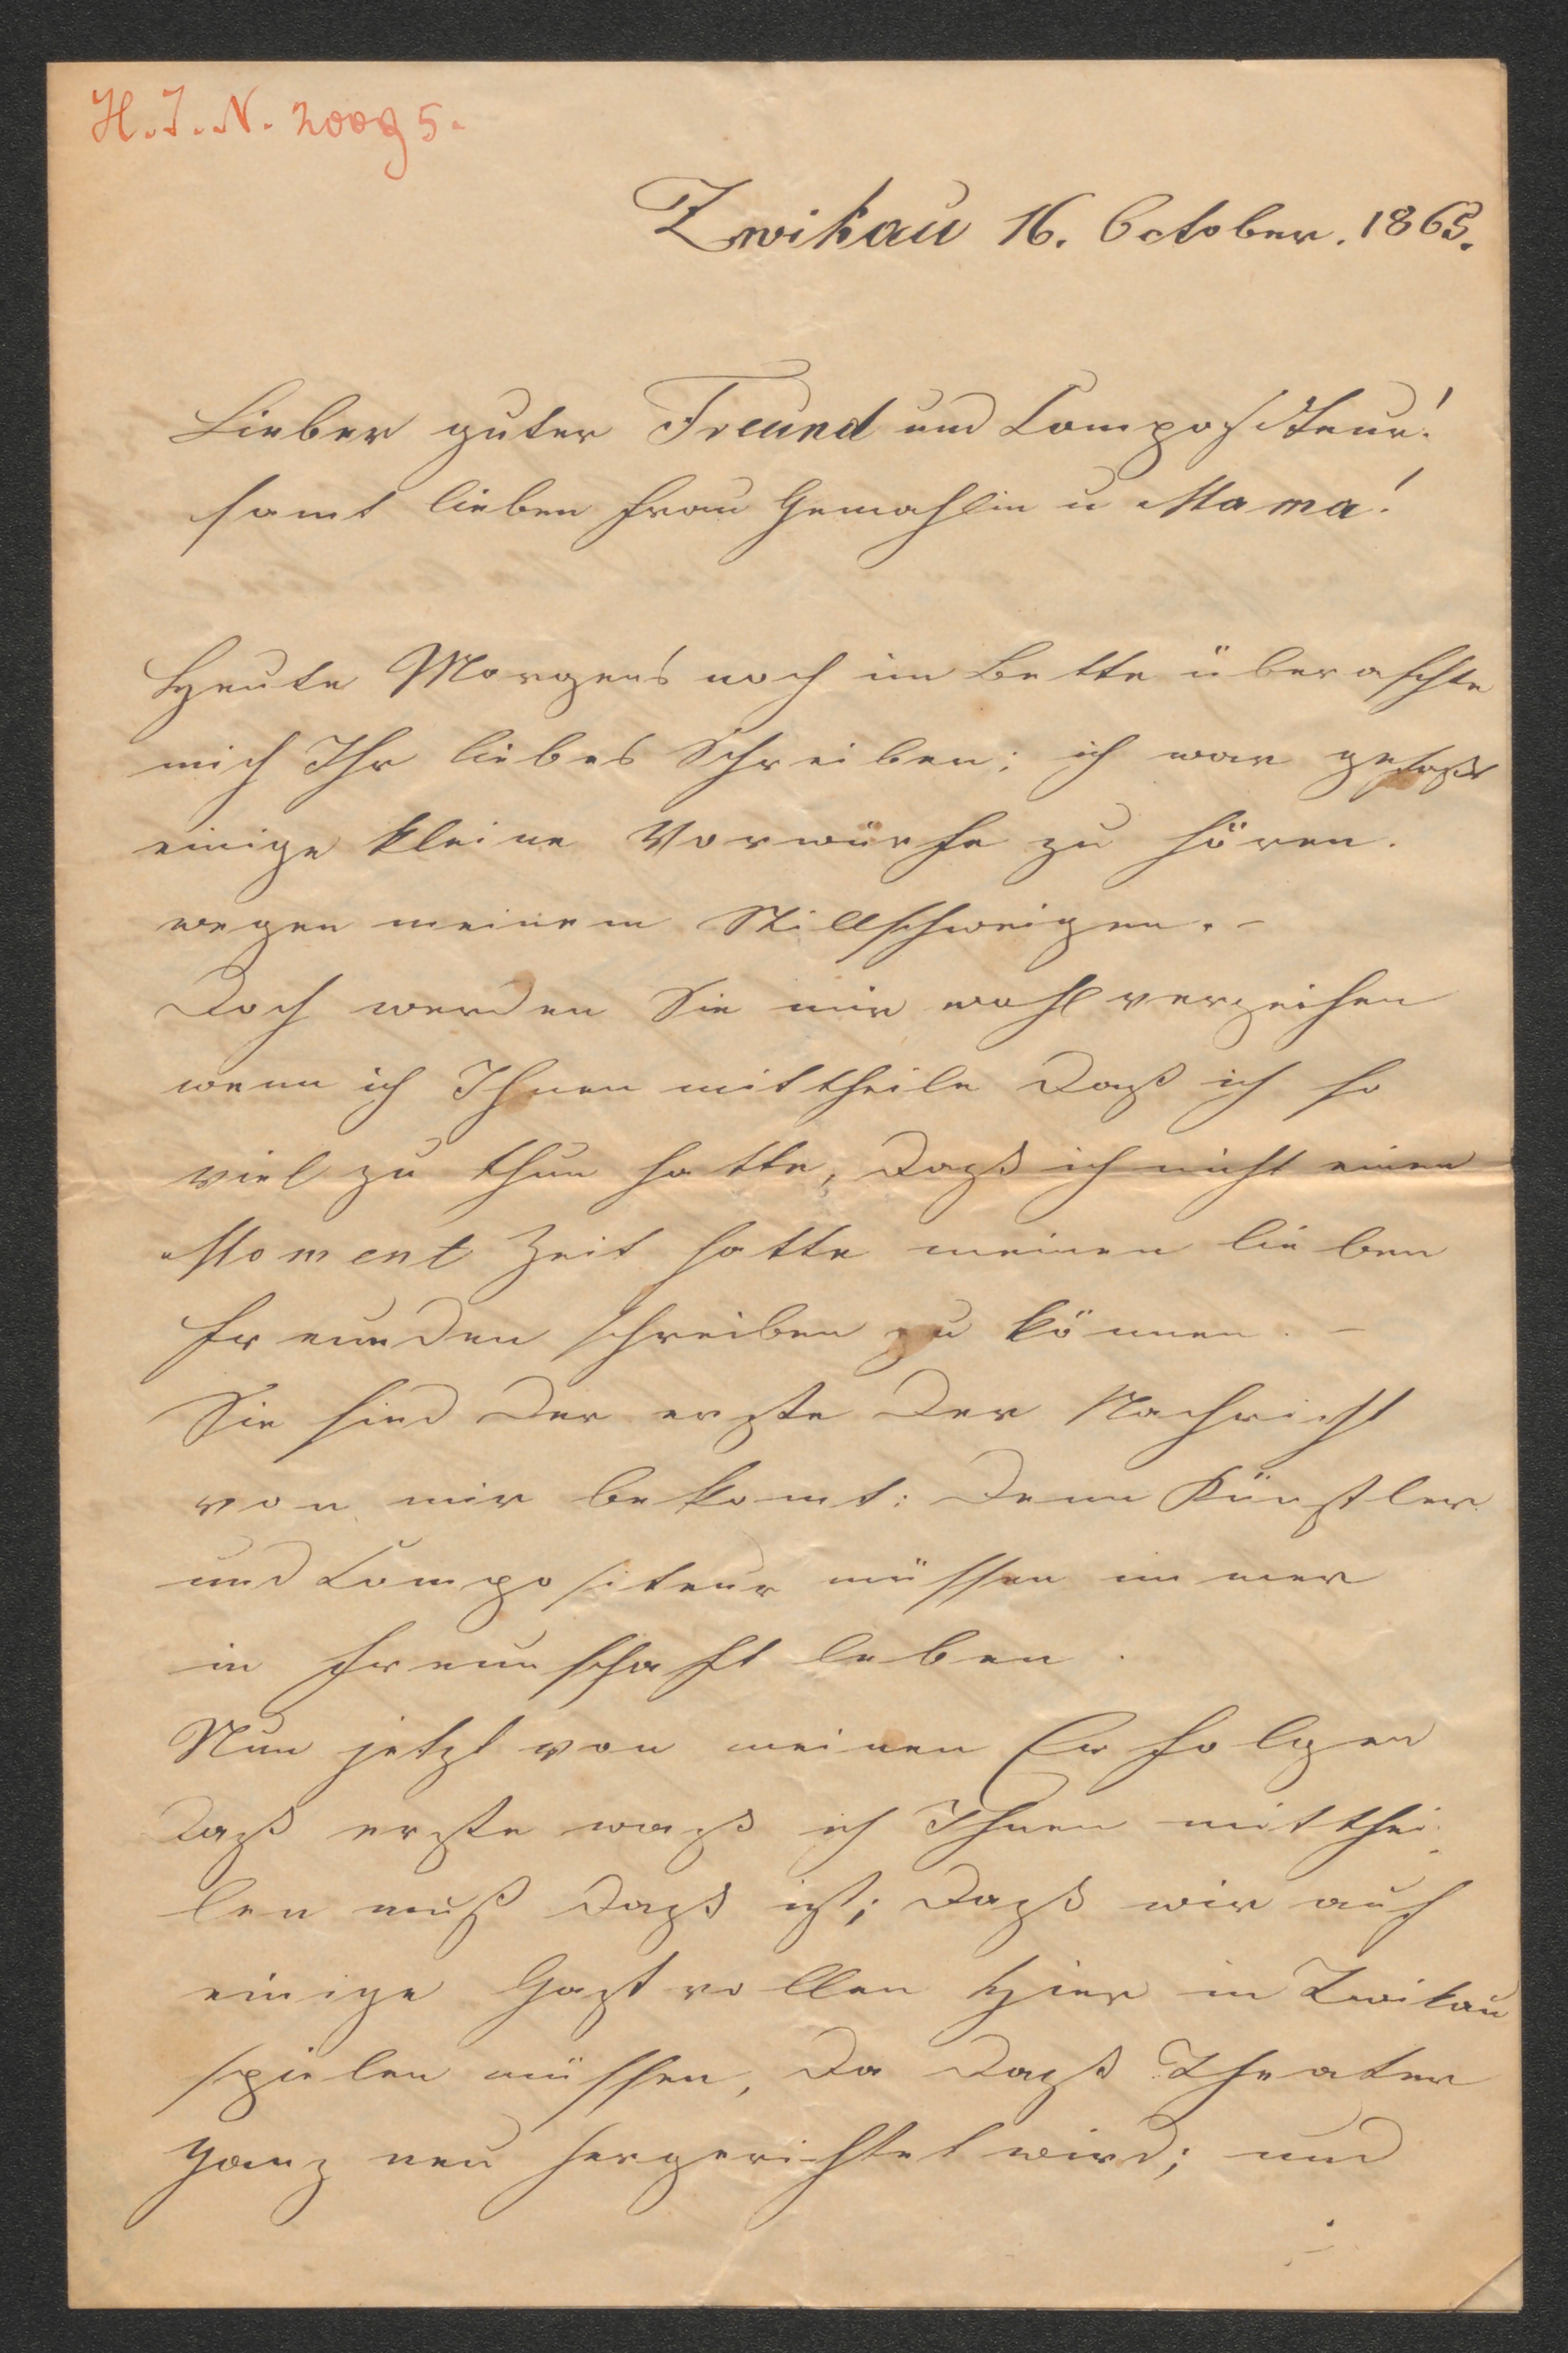 H.I.N. 20095.
Zwikau 16. October. 1863.
Lieber guter Freund und Compositeur!
samt lieben Frau Gemahlin u Mama!
Heute Morgens noch im Bette überaschte
mich Ihr liebes Schreiben; ich war gefaßt
einige kleine Vorwürfe zu hören.
wegen meinem Stillschweigen. –
Doch werden Sie mir wohl verzeihen
wenn ich Ihnen mittheile daß ich so
viel zu thun hatte, daß ich nicht einen
Moment Zeit hatte meinen lieben
Freunden schreiben zu können. –
Sie sind der erste der Nachricht
von mir bekomt: denn Künstler
und Compositeur müssen immer
in Freunschaft leben.
Nun jetzt von meinen Erfolgen
daß erste waß ich Ihnen mitthei
len muß daß ist; daß wir auch
einige Gastrollen Hier in Zwikau
spielen müssen, da daß Theater
ganz neu hergerichtet wird; und